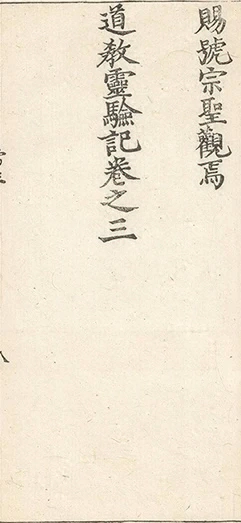 賜號宗聖觀焉
道教靈驗記卷之三
八